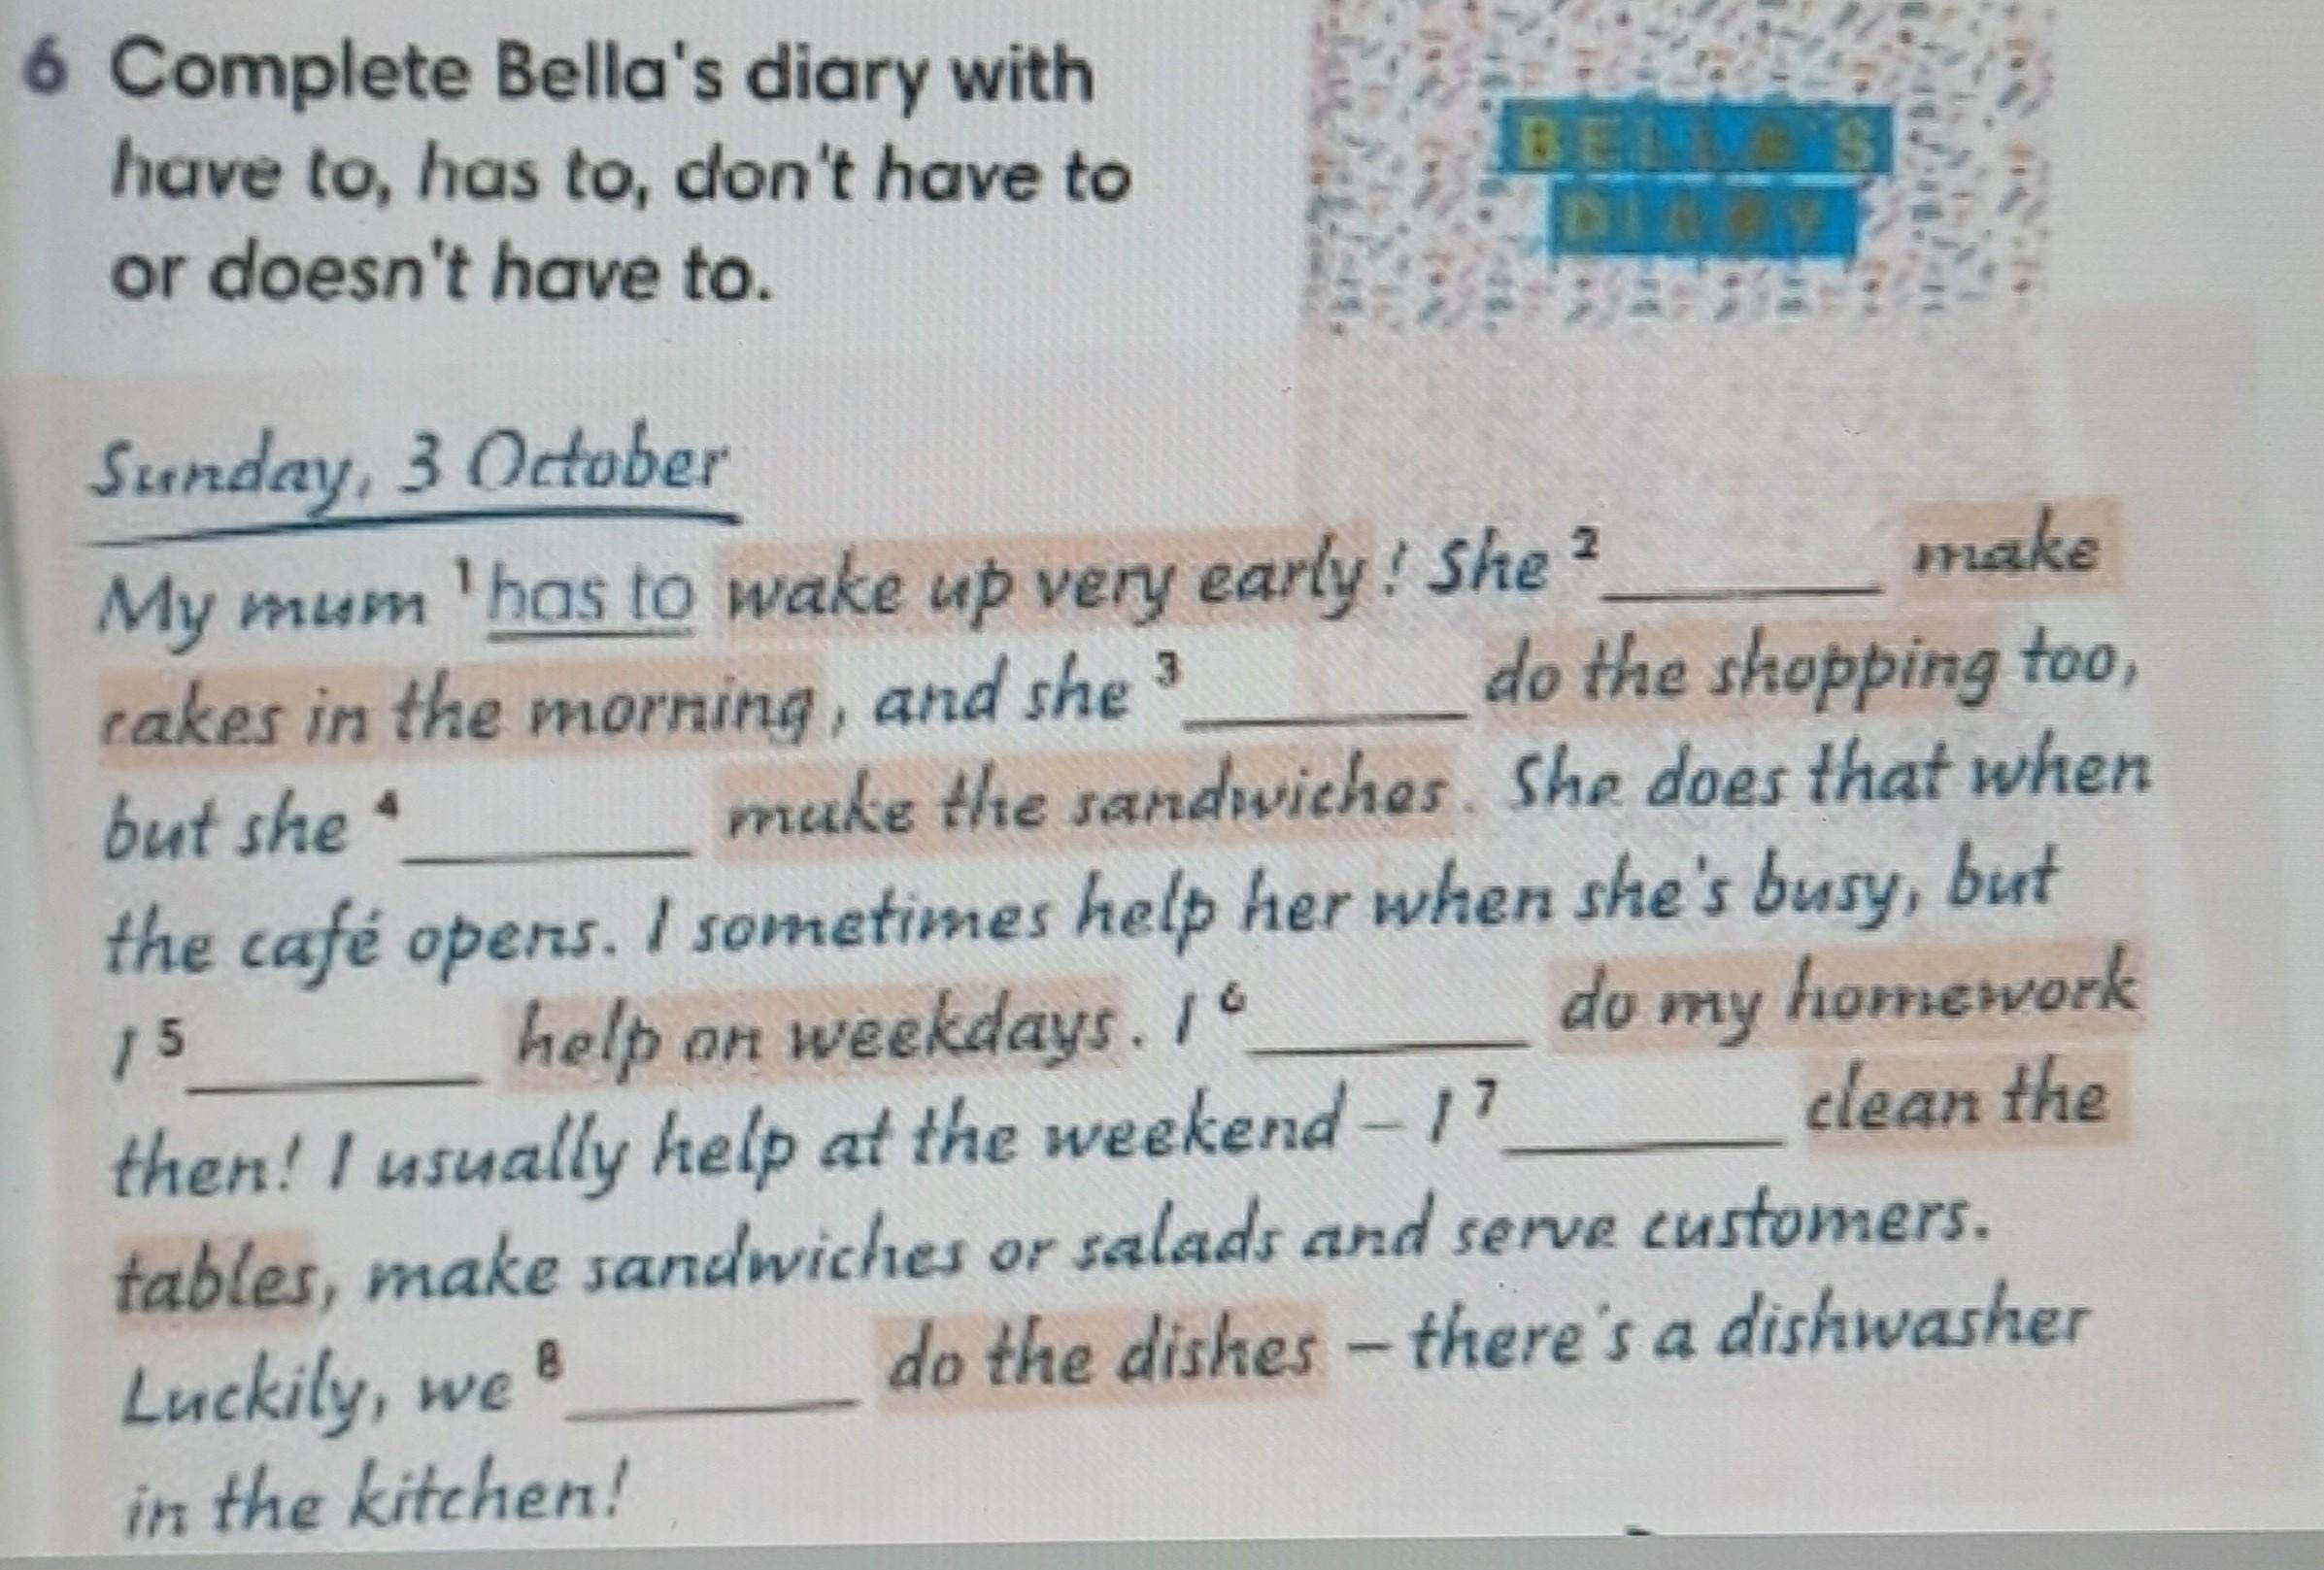 6 Complete Bella's diary with
have to, has to, don't have to
or doesn't have to.
BELLA'S
DIARY
Sunday, 3 October
My mum ¹ has to wake up very early! She ² ______ make
cakes in the morning, and she ³ ______ do the shopping too,
but she ⁴ ______ make the sandwiches. She does that when
the café opens. I sometimes help her when she's busy, but
I ⁵ ______ help on weekdays. I ⁶ ______ do my homework
then! I usually help at the weekend – I ⁷ ______ clean the
tables, make sandwiches or salads and serve customers.
Luckily, we ⁸ ______ do the dishes – there's a dishwasher
in the kitchen!